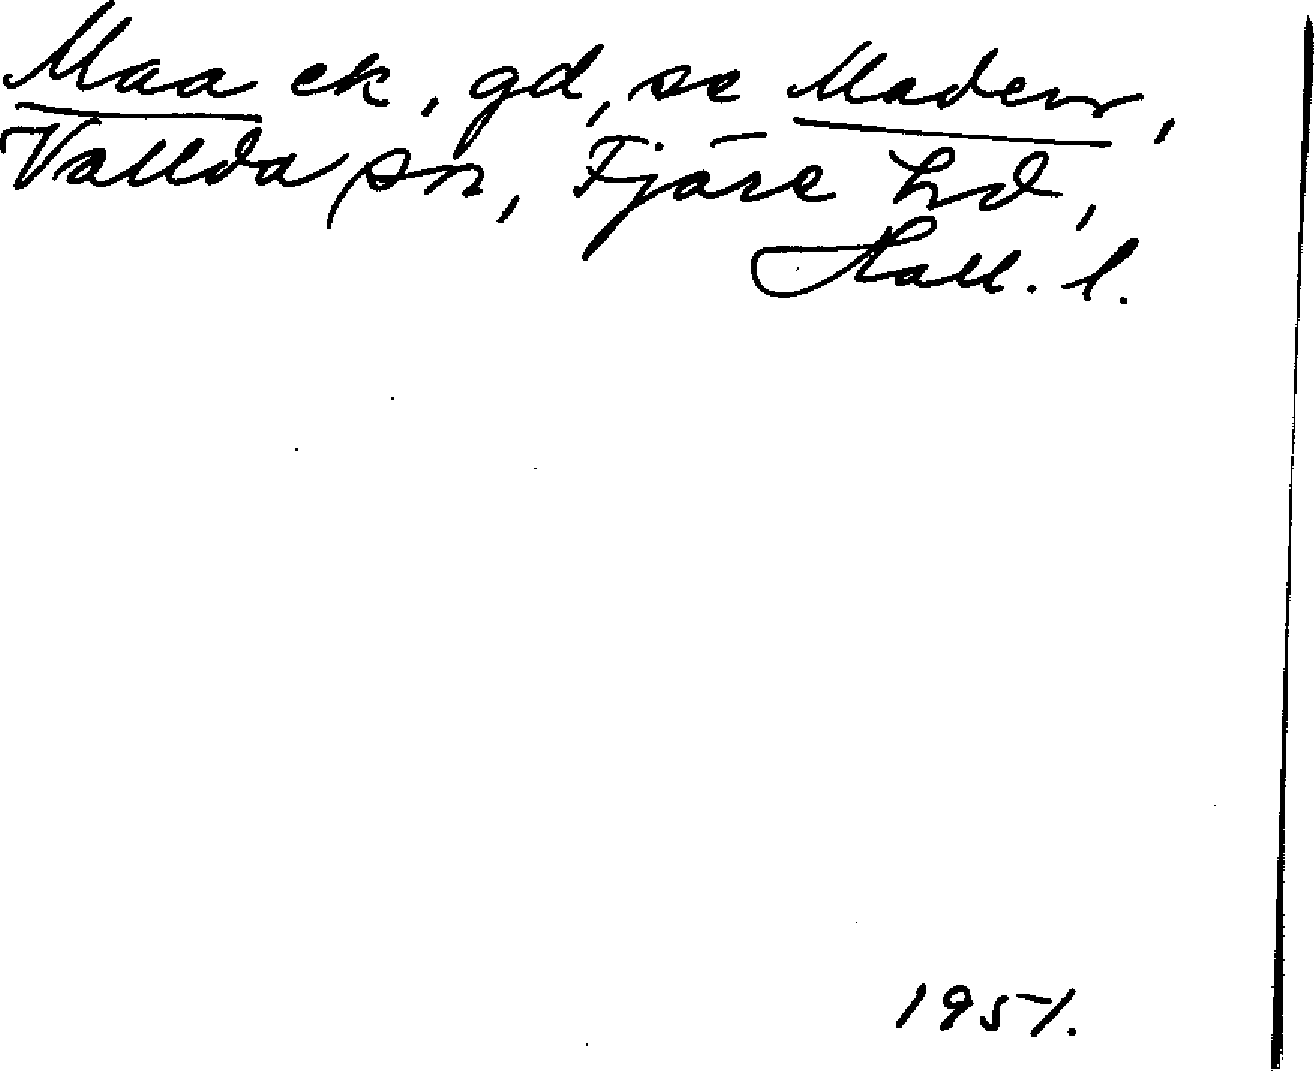 Maa ek, gd, se Maden,
Vallda sn, Fjäre hd,
Hall. l.
1951.